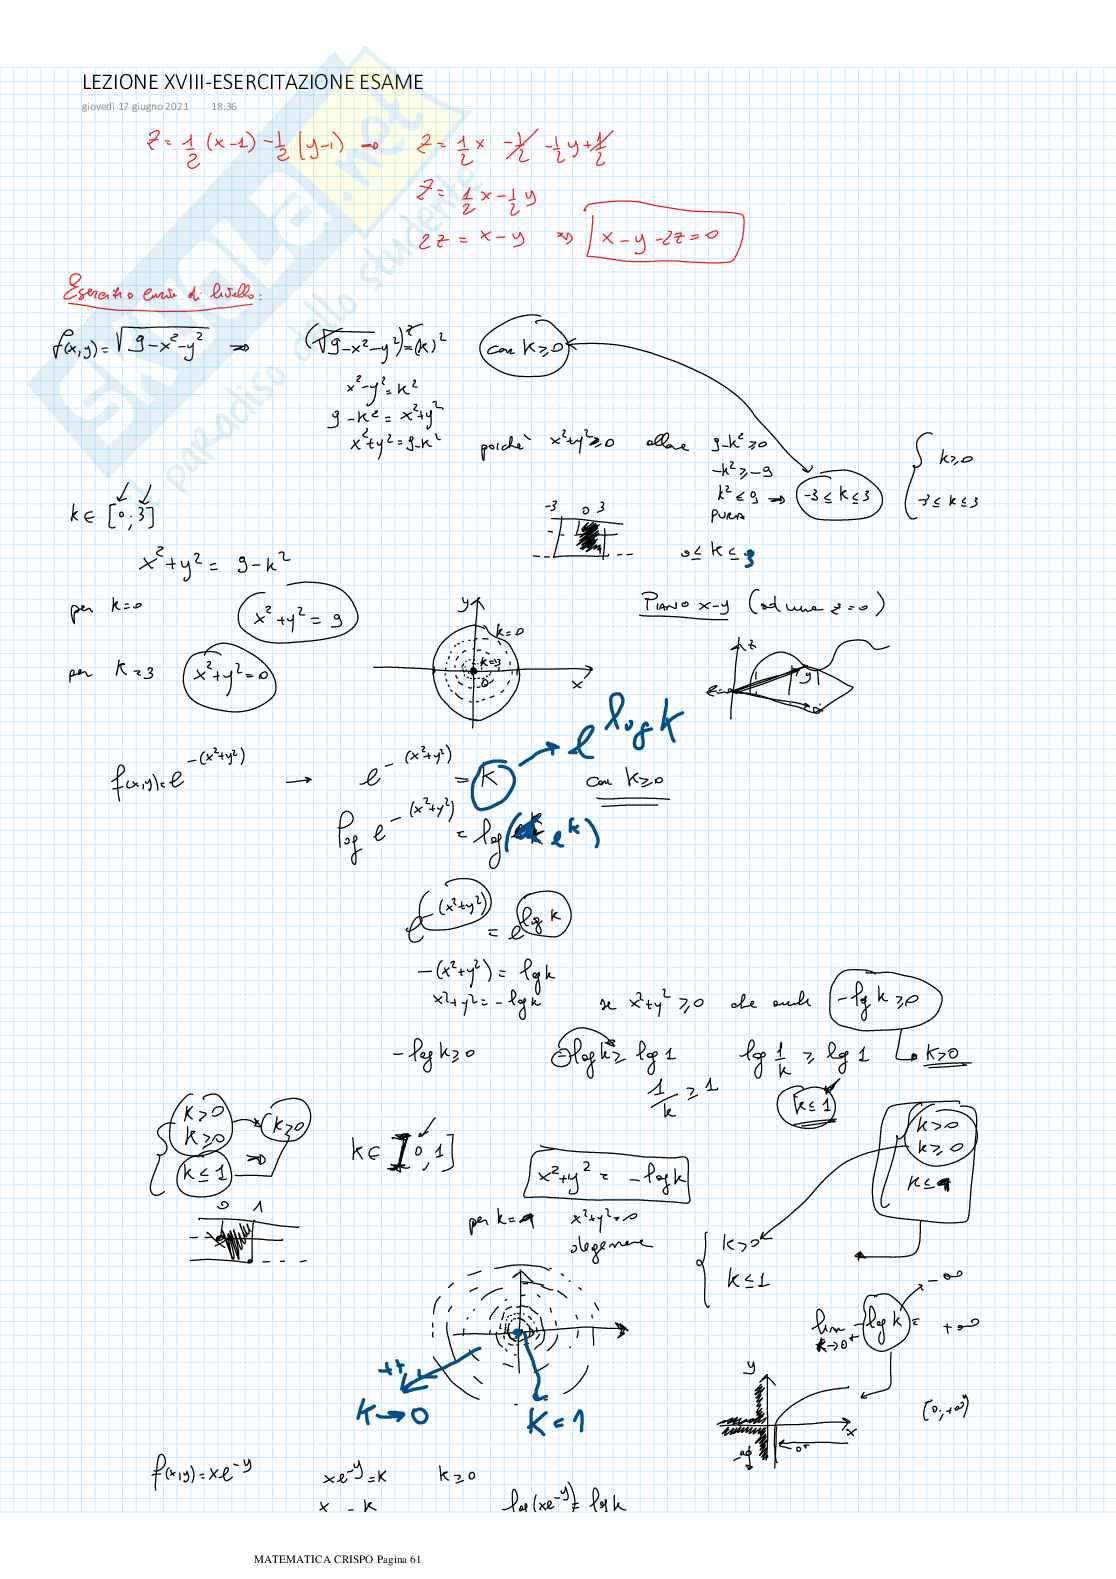 LEZIONE XVIII-ESERCITAZIONE ESAME
giovedì 17 giugno 2021 18:36
z = 1/2 (x-1) - 1/2 (y-1) → z = 1/2 x - 1/2 - 1/2 y + 1/2
z = 1/2 x - 1/2 y
2z = x-y ⇒ x-y-2z=0
Esercizio curve di livello:
f(x,y) = √9-x²-y² ⇒ (√9-x²-y²)² = (k)² con k≥0
x²-y²=k²
9-k² = x²+y²
x²+y²=9-k² poiché x²+y²≥0 allora 9-k²≥0
-k²≥-9
k²≤9 ⇒ -3≤k≤3
k≥0
-3≤k≤3
k∈[0;3]
-3 0 3
0≤k≤3
x²+y² = 9-k²
per k=0 x²+y²=9
y k=0
k=3
0 x
PIANO x-y (z=0)
z
y
per k=3 x²+y²=0
f(x,y)=e^-(x²+y²) → e^-(x²+y²) = k → e^log k
con k≥0
log e^-(x²+y²) = log( e^k)
e^-(x²+y²) = e^log k
-(x²+y²) = log k
x²+y² = -log k se x²+y²≥0 che anche -log k≥0
-log k≥0 -log k≥ log 1 log 1/k ≥ log 1 k>0
1/k ≥ 1 k≤1
k>0
k≥0 k≥0
k≤1
k∈]0,1]
x²+y² = -log k
k>0
k≥0
0 1
per k=1 x²+y²=0
degenere
k>0
k≤1
lim k→0⁺ -log k = +∞
-∞
k→0 k=1
y
x
0⁺
-∞
(0;+∞)
f(x,y)=xe^-y xe^-y=k k≥0
x = k log(xe^-y)= log k
skuola.net
paradiso dello studente
MATEMATICA CRISPO Pagina 61